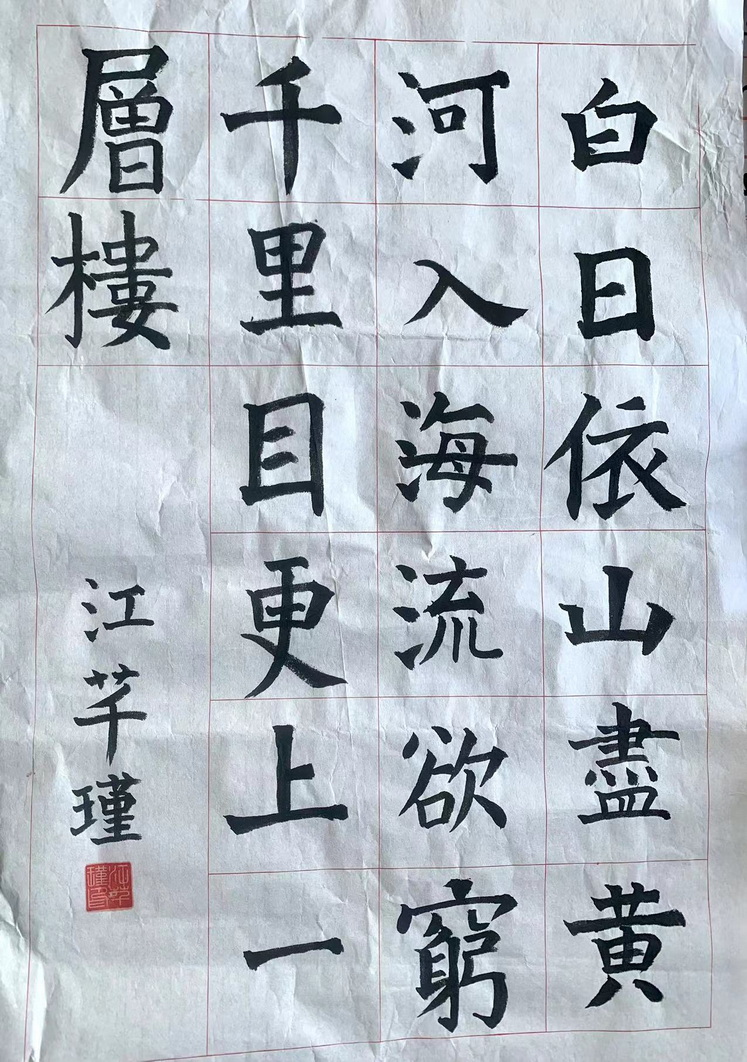 白日依山盡黄
河入海流欲窮
千里目更上一
層樓
江芊瑾